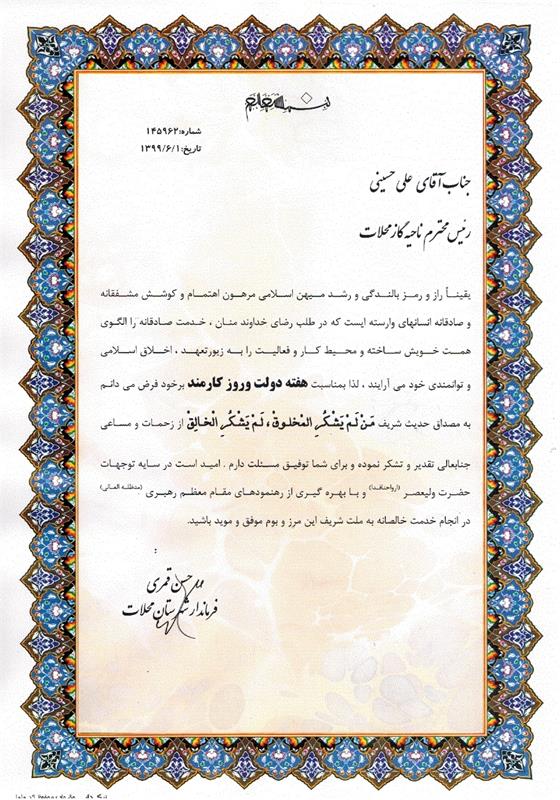 بسمه تعالی
شماره:۱۴۵۹۶۲
تاریخ:۱۳۹۹/۶/۱
جناب آقای علی حسینی
رئیس محترم ناحیه گاز محلات
یقیناً راز و رمز بالندگی و رشد میهن اسلامی مرهون اهتمام و کوشش مشفقانه
و صادقانه انسانهای وارسته ایست که در طلب رضای خداوند منان ، خدمت صادقانه را الگوی
همت خویش ساخته و محیط کار و فعالیت را به زیورتعهد ، اخلاق اسلامی
و توانمندی خود می آرایند ، لذا بمناسبت هفته دولت وروز کارمند برخود فرض می دانم
به مصداق حدیث شریف مَنْ لَمْ یَشْکُرِ المْخلوق ، لَمْ یَشْکُرِ الْخالِقْ از زحمات و مساعی
جنابعالی تقدیر و تشکر نموده و برای شما توفیق مسئلت دارم . امید است در سایه توجهات
حضرت ولیعصر (ارواحنافدا) و با بهره گیری از رهنمودهای مقام معظم رهبری (مدظله العالی)
در انجام خدمت خالصانه به ملت شریف این مرز و بوم موفق و موید باشید.
حسن قمری
فرماندار شهرستان محلات